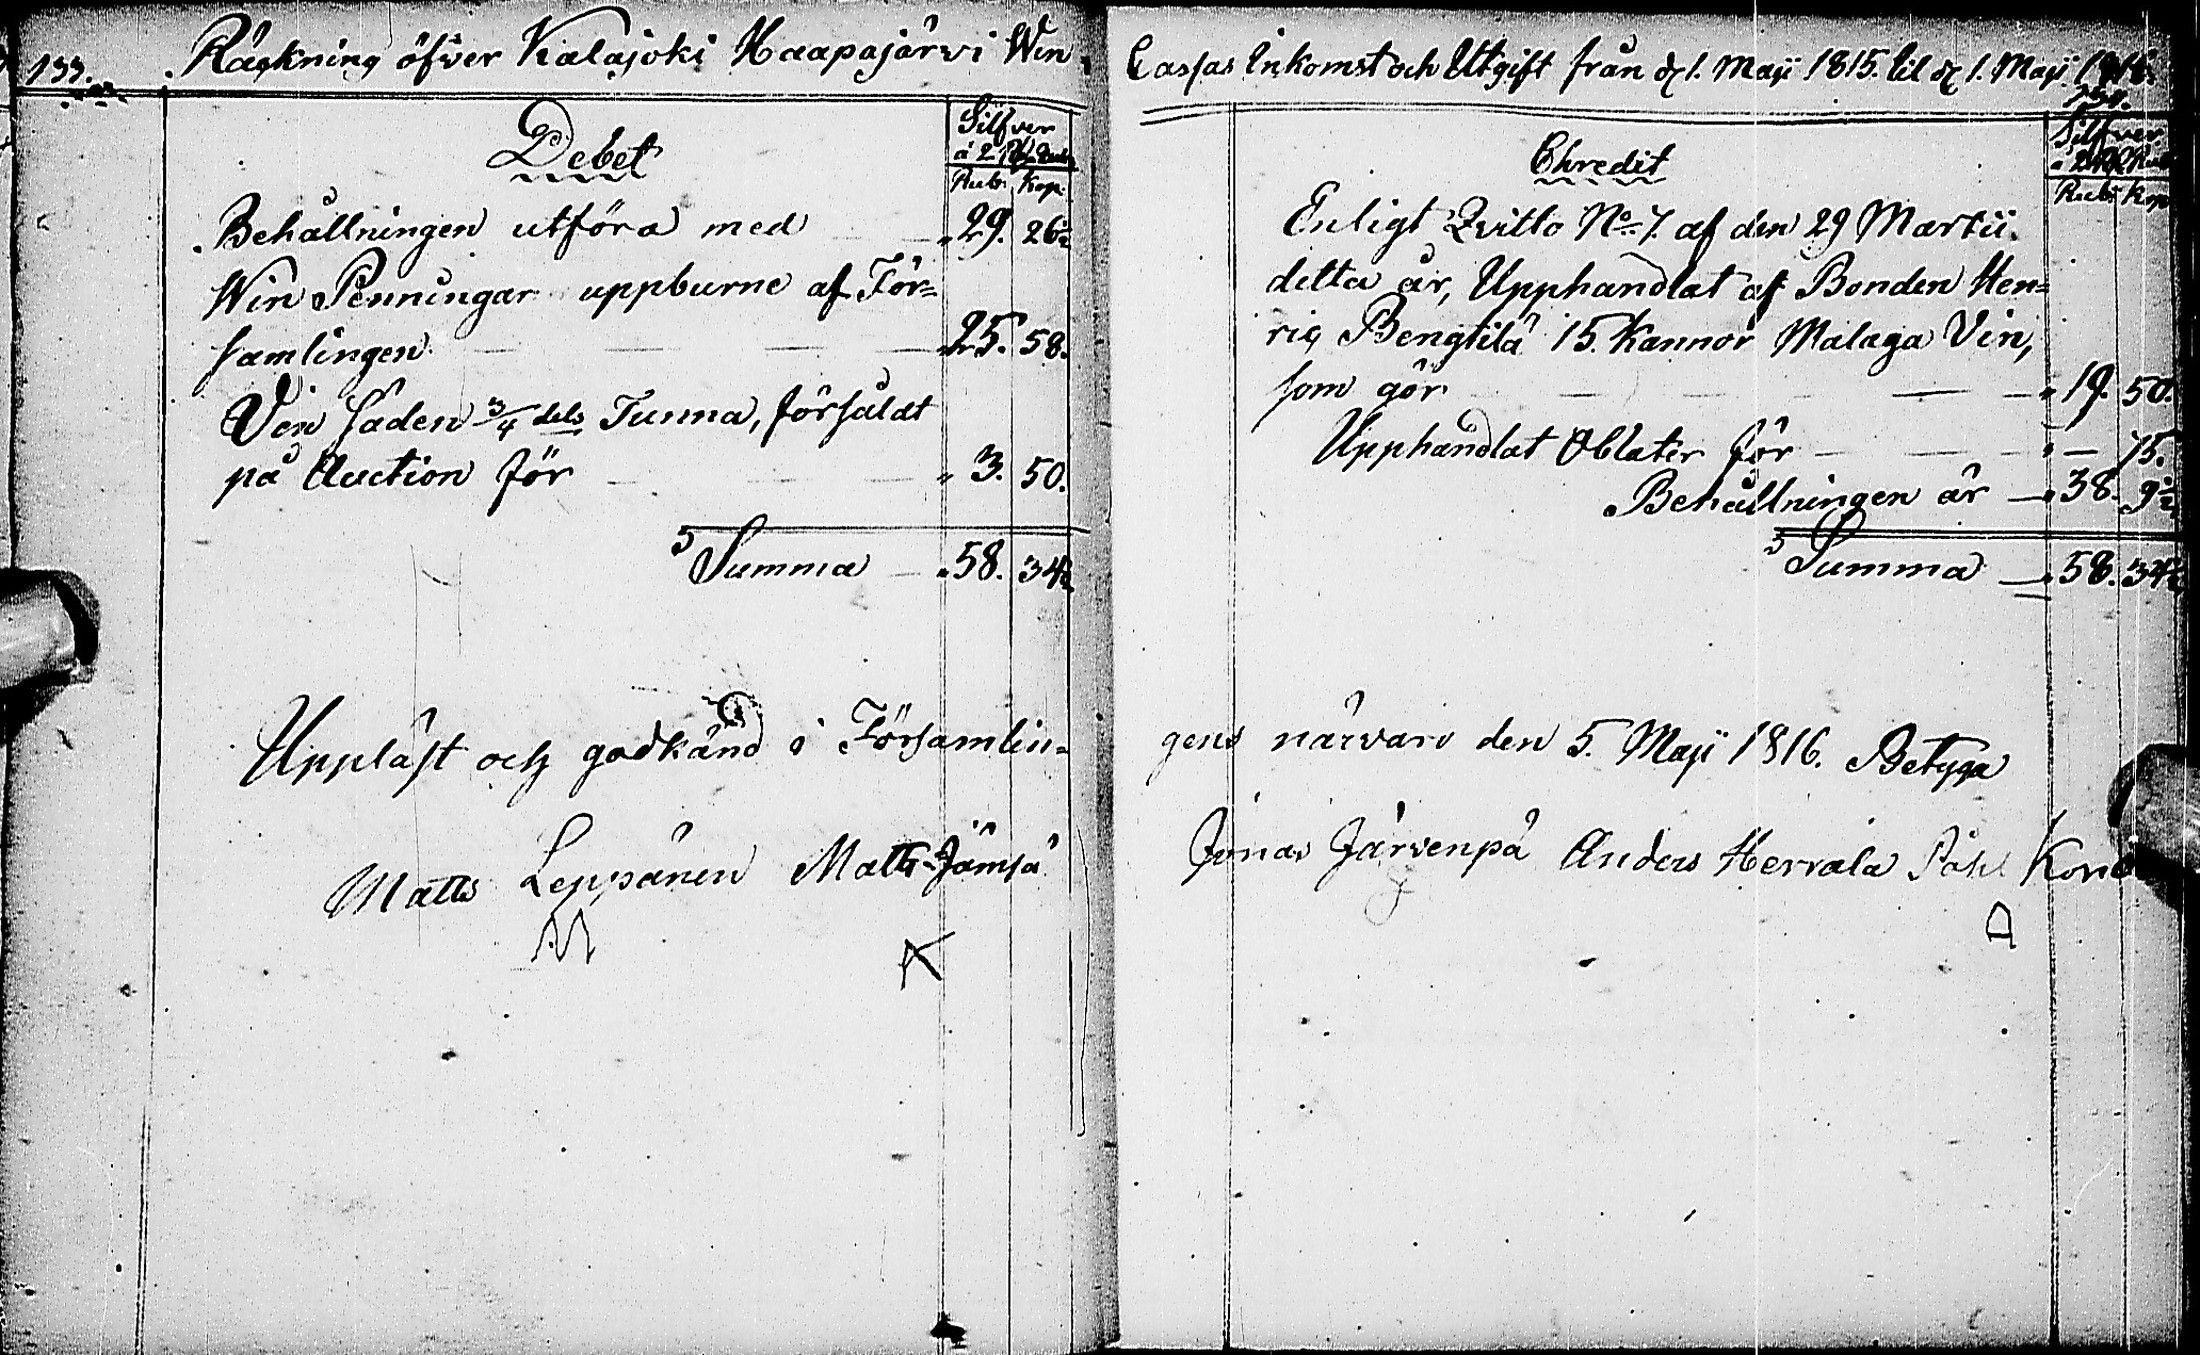 133.
Räkning öfver Kalajoki Haapajärvi Win
Debet
Silfver
à 2
Rub. Kop.
Behållningen utföra med 29. 26½
Win Penningar uppburne af För=
samlingen 25. 58.
Vin Säden 3/4 dels Tunna, försåldt
på Auction för 3. 50.
Summa 58. 34½
Uppläst och godkänd i Församlin=
Matts Leppänen Matts Jämsä
M
Cassas Inkomst och Utgift från d. 1. Maji 1815. til d. 1. Maji 1816.
134.
Chredit
Silfver
Rub. Kop
Enligt Qvitto No 7. af den 29 Martii
detta år, Upphandlat af Bonden Hen=
ric Bengtilä 15. Kannor Malaga Vin,
som gör 19. 50.
Upphandlat Oblater för — 75.
Behållningen är 38. 9½
Summa 58. 34½
gens närvaro den 5. Maji 1816. Betyga
Jonas Järvenpä Anders Herrala Påhl